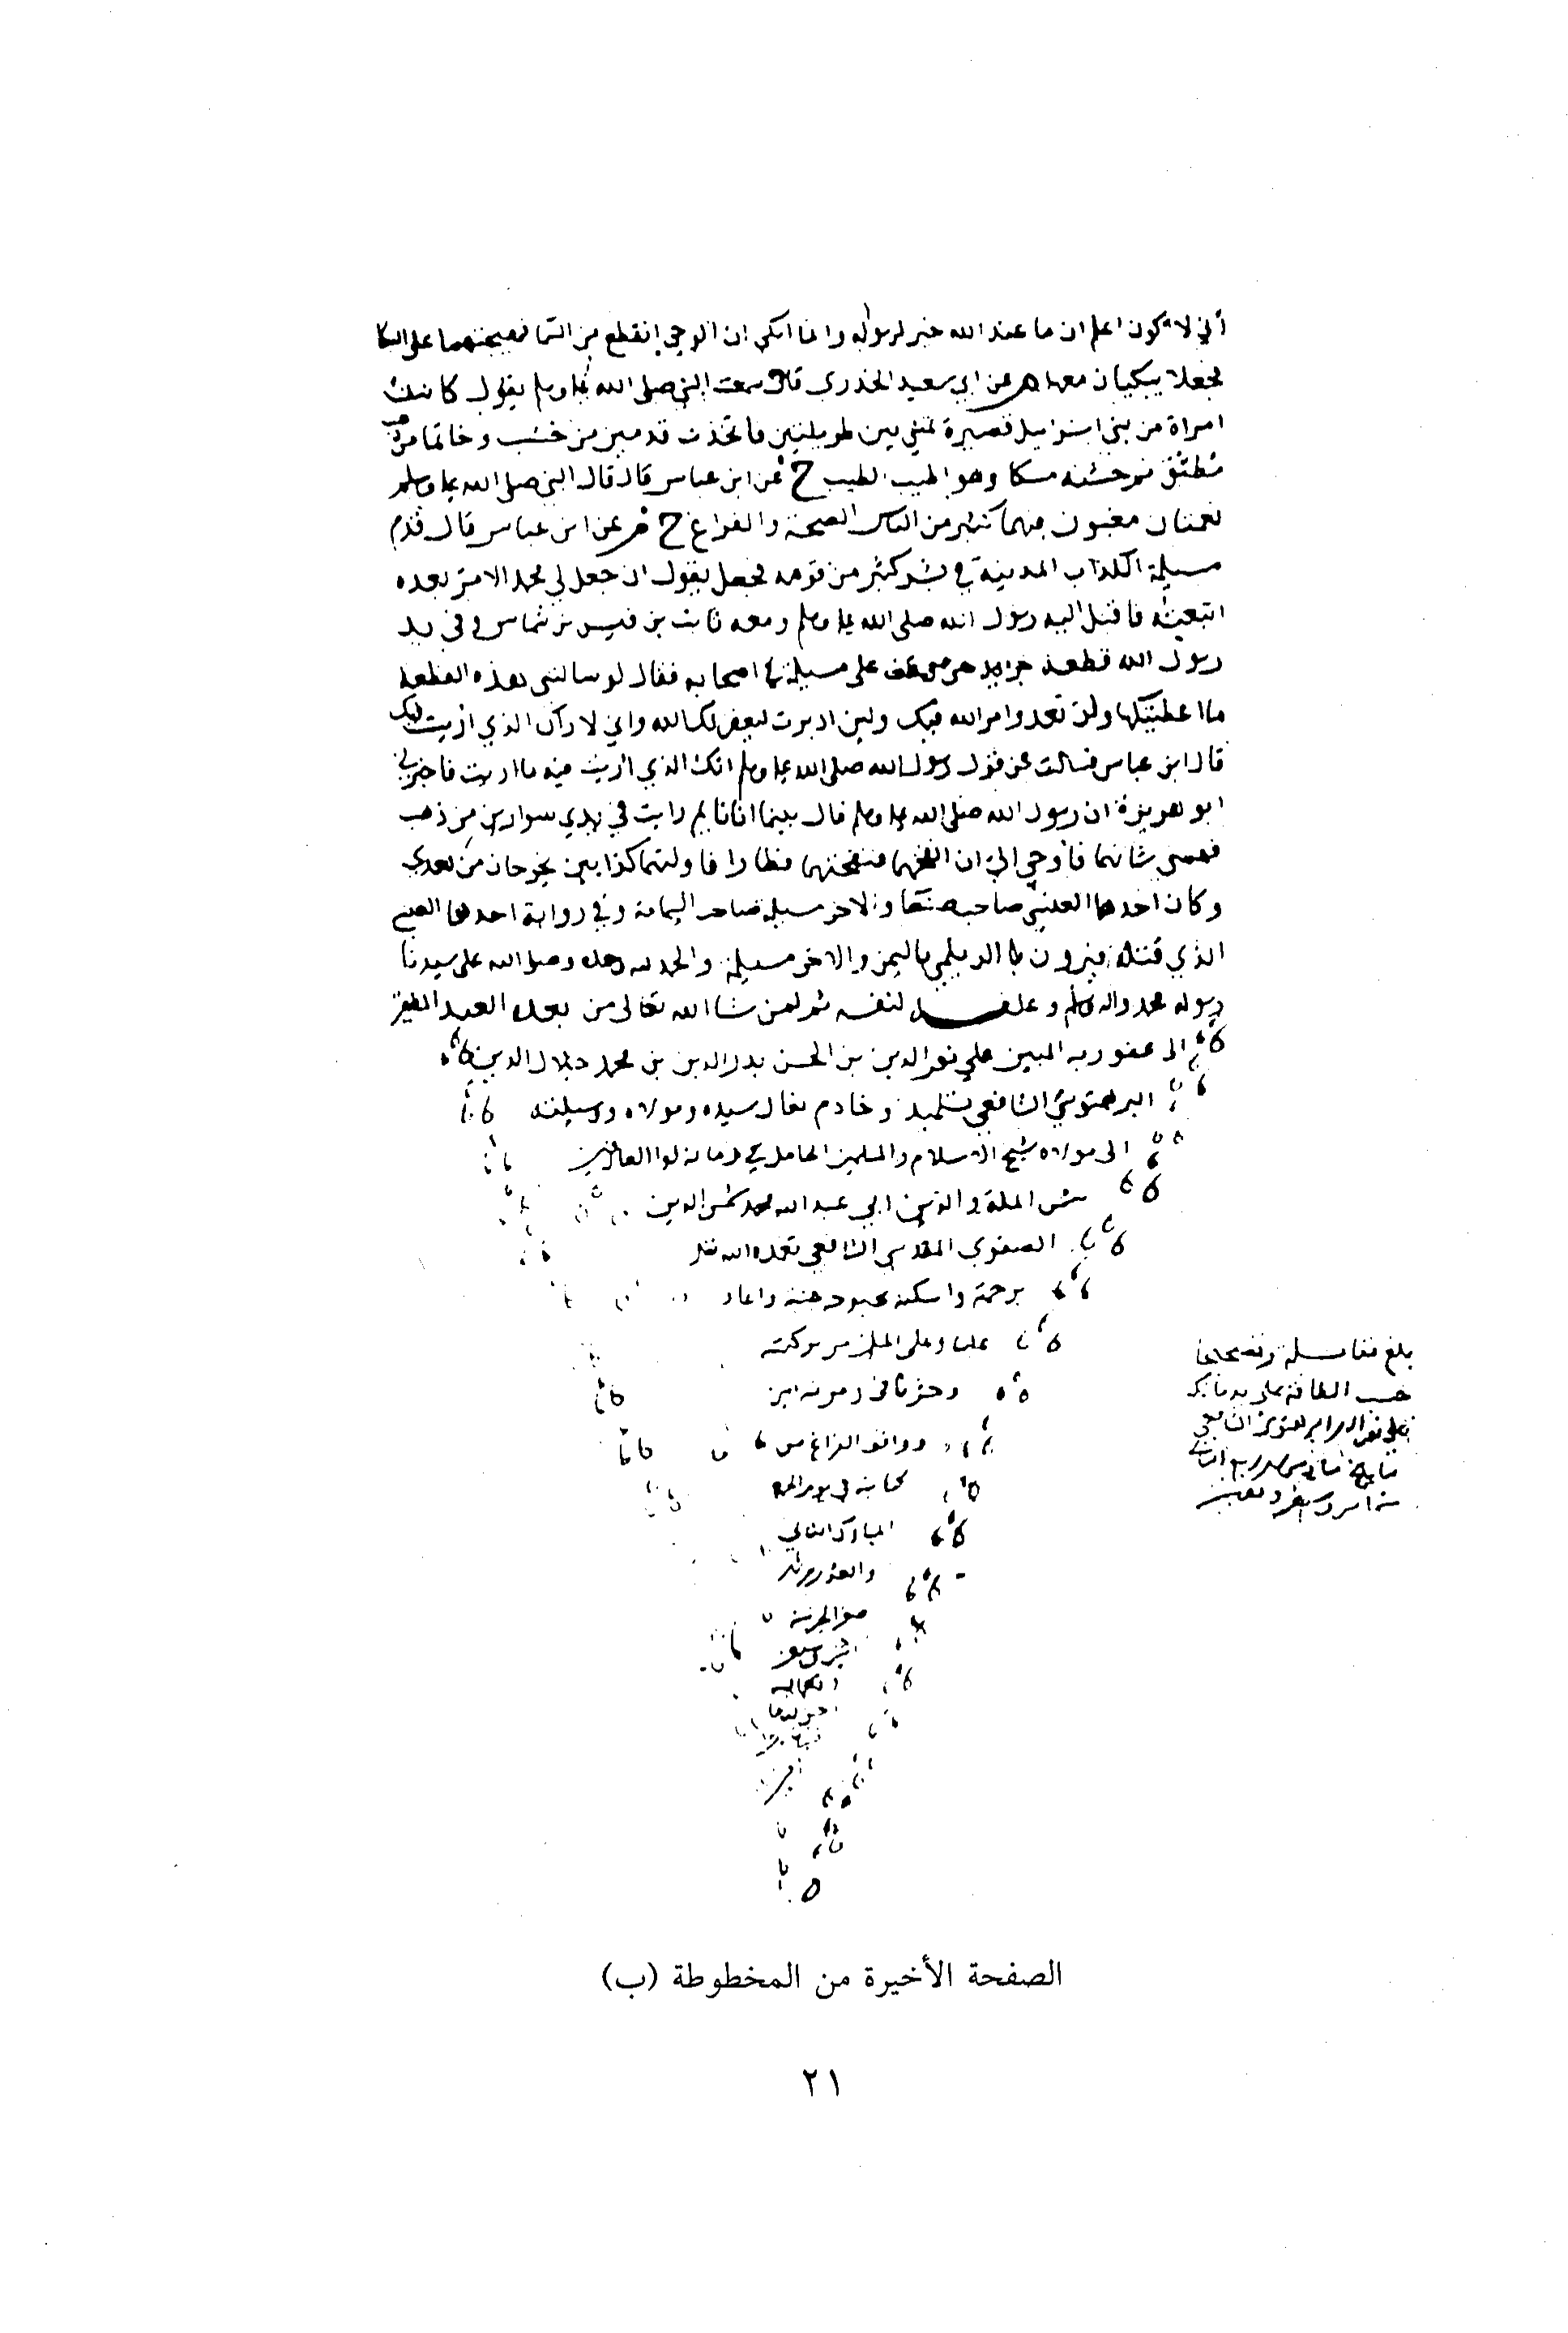 أني لا اكون اعلم ان ما عند الله خير لرسوله وانما ابكي ان الوحي انقطع من السما فهيجتهما على البكا
فجعلا يبكيان معها م عن ابي سعيد الخدري قال سمعت النبي صلى الله عليه وسلم يقول كانت
امراة من بني اسرايل قصيرة تمشي بين طويلتين فاتخذت قدمين من خشب وخاتما من ذهب
مطبق ثم حشته مسكا وهو اطيب الطيب خ عن ابن عباس قال قال النبي صلى الله عليه وسلم
نعمتان مغبون فيهما كثير من الناس الصحة والفراغ خ م عن ابن عباس قال قدم
مسيلمة الكذاب المدينة في بشر كثير من قومه فجعل يقول ان جعل لي محمد الامر بعده
اتبعته فاقبل اليه رسول الله صلى الله عليه وسلم ومعه ثابت بن قيس بن شماس وفي يد
رسول الله قطعة جريد حتى وقف على مسيلمة في اصحابه فقال لو سالتني هذه القطعة
ما اعطيتكها ولن تعدوا امر الله فيك ولين ادبرت ليعقرنك الله واني لا راك الذي اريت فيك
قال ابن عباس فسالت عن قول رسول الله صلى الله عليه وسلم انك الذي اريت فيه ما اريت فاخبرني
ابو هريرة ان رسول الله صلى الله عليه وسلم قال بينما انا نايم رايت في يدي سوارين من ذهب
فهمني شانهما فاوحي الي ان انفخهما فنفختهما فطارا فاولتهما كذابين يخرجان من بعدي
وكان احدهما العنسي صاحب صنعا والاخر مسيلمة صاحب اليمامة وفي رواية احدهما العنسي
الذي قتله فيرون الديلمي باليمن والاخر مسيلمة والحمد لله وحده وصلى الله على سيدنا
رسوله محمد واله وسلم وعلقه لنفسه ثم لمن شا الله تعالى من بعده العبد الفقير
الى عفو ربه المبين علي نور الدين بن الحسن بدر الدين بن محمد جلال الدين
البرهتوشي الشافعي تلميذ وخادم نعال سيده ومولاه ووسيلته
الى مولاه شيخ الاسلام والمسلمين الحامل في زمانه لوا العارفين
شمس الملة والدين ابي عبد الله محمد شمس الدين
الصفوي المقدسي الشافعي تغمده الله تعالى
برحمته واسكنه بحبوحة جنته واعاد
علينا وعلى المسلمين من بركته
وحشرنا في زمرته امين
ووافق الفراغ من
كتابته في يوم الجمعة
المبارك الثاني
والعشرين
بلغ مقابلة وتصحيحا
حسب الطاقة على يد مالكه
علي نور الدين البرهتوشي الشافعي
الصفحة الأخيرة من المخطوطة (ب)
٢١